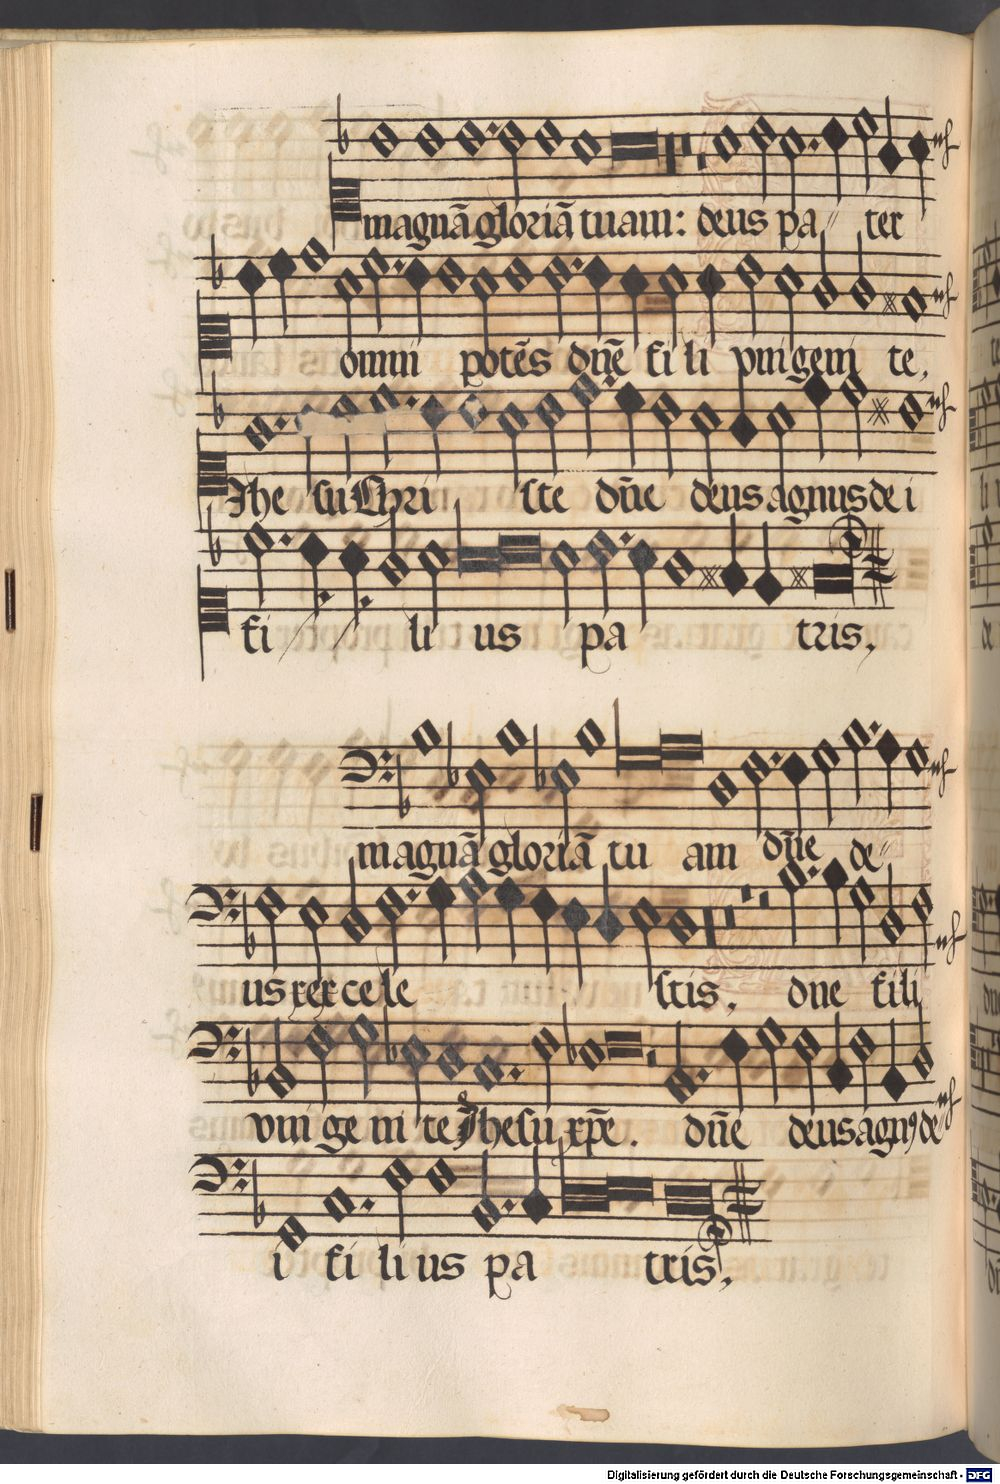 magnā gloriā tuam: deus pa ter
omni potēs dñe fi li vnigeni te,
Jhe su Chri ste dñe deus agnus de i
fi li us pa tris,
magnā gloriā tu am dñe de
us rex ce le stis, dne fili
vni ge ni te Jhesu xpē. dñe deus agn9 de
i fi li us pa tris,
Digitalisierung gefördert durch die Deutsche Forschungsgemeinschaft - DFG